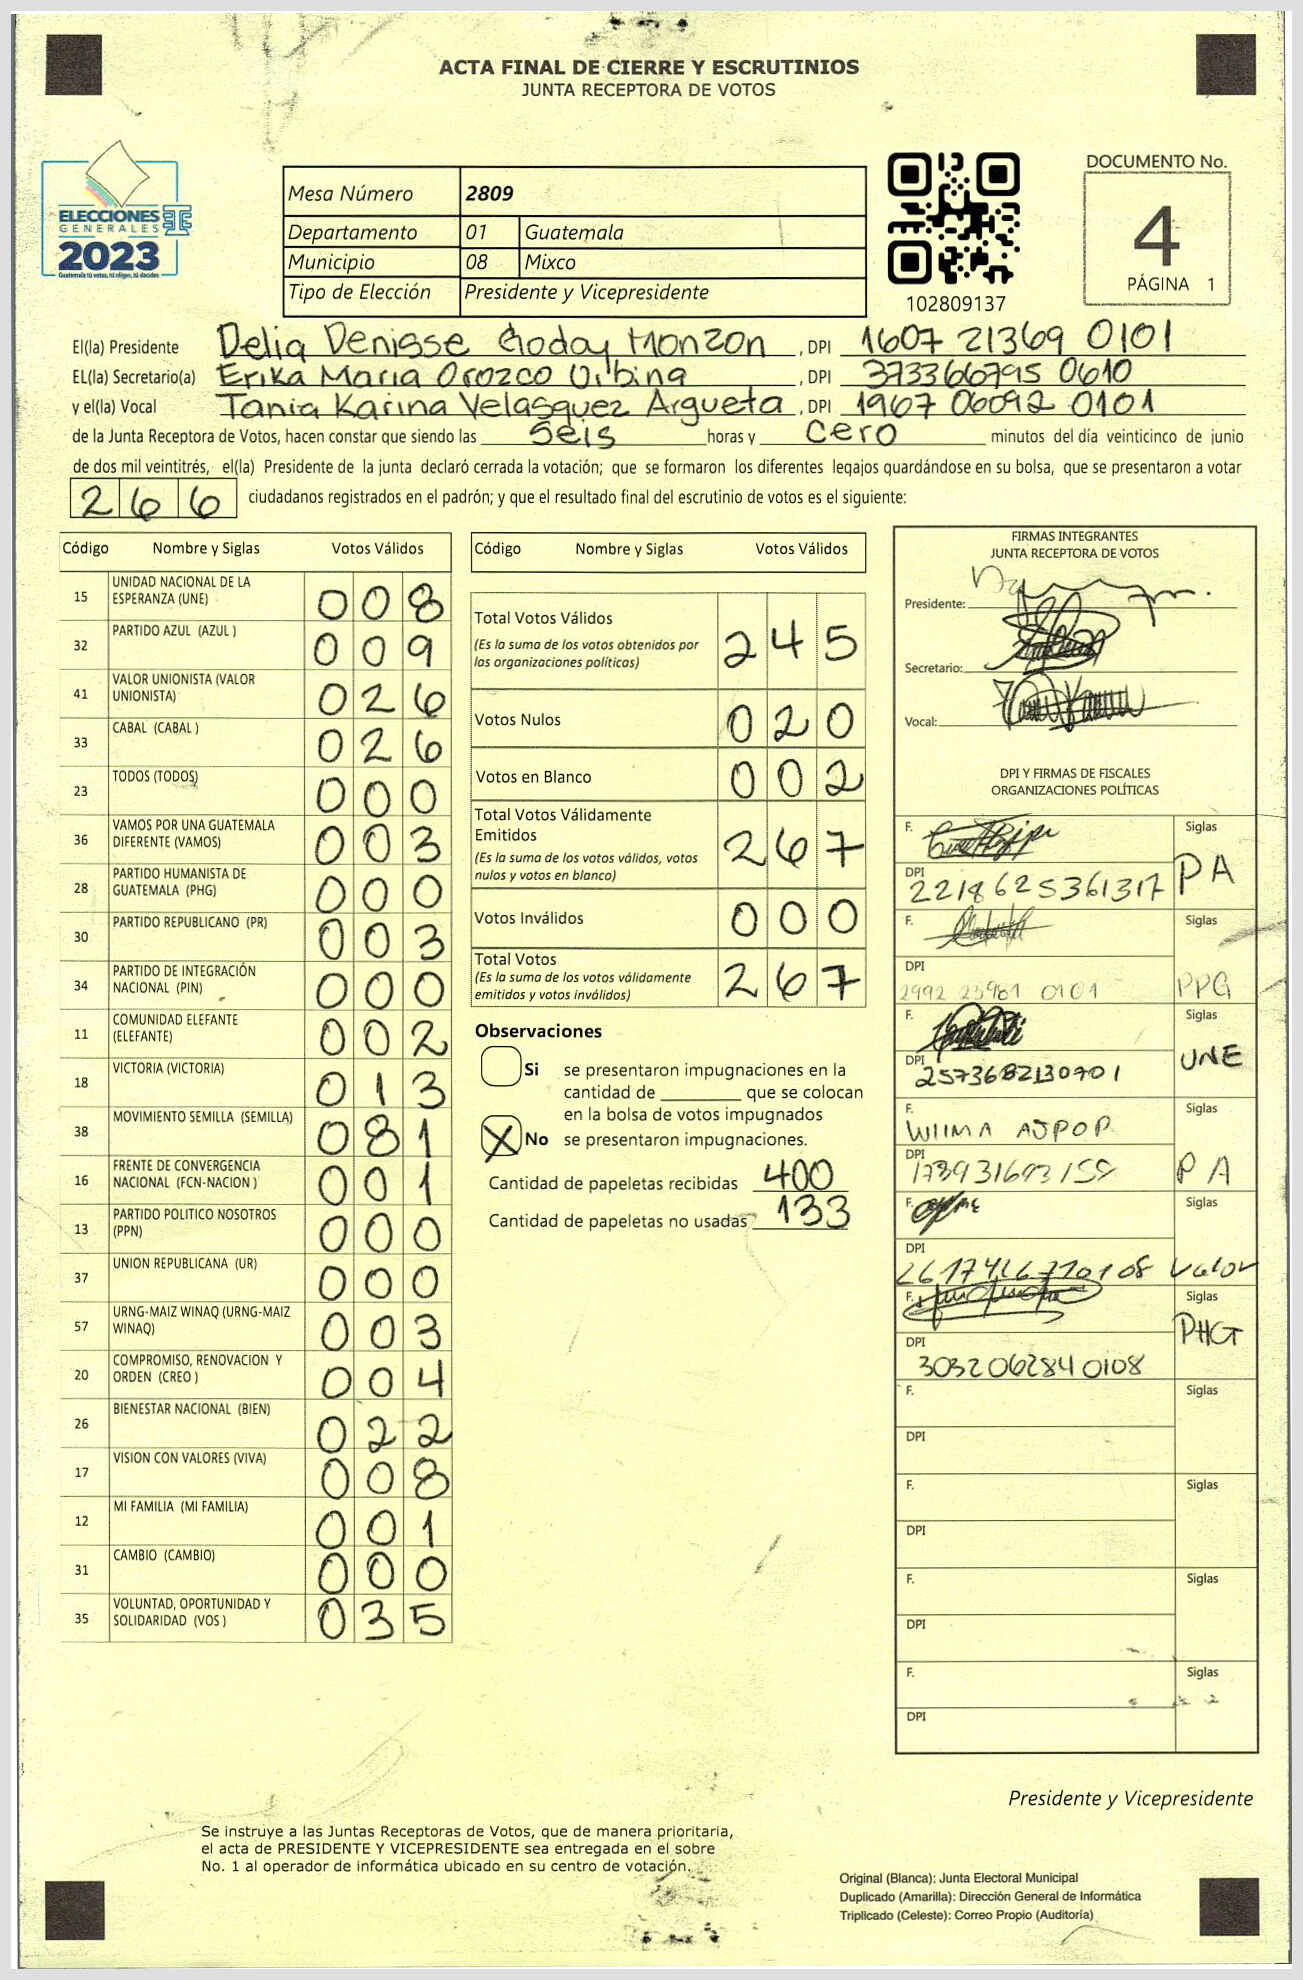 ACTA FINAL DE CIERRE Y ESCRUTINIOS
JUNTA RECEPTORA DE VOTOS
ELECCIONES
GENERALES
2023
Guatemala tú votas, tú eliges, tú decides
Mesa Número 2809
Departamento 01 Guatemala
Municipio 08 Mixco
Tipo de Elección Presidente y Vicepresidente
102809137
DOCUMENTO No.
4
PÁGINA 1
El(la) Presidente Delia Denisse Godoy Monzon , DPI 1607 21369 0101
EL(la) Secretario(a) Erika Maria Orozco Urbina , DPI 373366795 0610
y el(la) Vocal Tania Karina Velasquez Argueta , DPI 1967 06092 0101
de la Junta Receptora de Votos, hacen constar que siendo las seis horas y cero minutos del día veinticinco de junio
de dos mil veintitrés, el(la) Presidente de la junta declaró cerrada la votación; que se formaron los diferentes legajos guardándose en su bolsa, que se presentaron a votar
266 ciudadanos registrados en el padrón; y que el resultado final del escrutinio de votos es el siguiente:
Código Nombre y Siglas Votos Válidos
15 UNIDAD NACIONAL DE LA
ESPERANZA (UNE) 008
32 PARTIDO AZUL (AZUL ) 009
41 VALOR UNIONISTA (VALOR
UNIONISTA) 026
33 CABAL (CABAL ) 026
23 TODOS (TODOS) 000
36 VAMOS POR UNA GUATEMALA
DIFERENTE (VAMOS) 003
28 PARTIDO HUMANISTA DE
GUATEMALA (PHG) 000
30 PARTIDO REPUBLICANO (PR) 003
34 PARTIDO DE INTEGRACIÓN
NACIONAL (PIN) 000
11 COMUNIDAD ELEFANTE
(ELEFANTE) 002
18 VICTORIA (VICTORIA) 013
38 MOVIMIENTO SEMILLA (SEMILLA) 081
16 FRENTE DE CONVERGENCIA
NACIONAL (FCN-NACION ) 001
13 PARTIDO POLITICO NOSOTROS
(PPN) 000
37 UNION REPUBLICANA (UR) 000
57 URNG-MAIZ WINAQ (URNG-MAIZ
WINAQ) 003
20 COMPROMISO, RENOVACION Y
ORDEN (CREO ) 004
26 BIENESTAR NACIONAL (BIEN) 022
17 VISION CON VALORES (VIVA) 008
12 MI FAMILIA (MI FAMILIA) 001
31 CAMBIO (CAMBIO) 000
35 VOLUNTAD, OPORTUNIDAD Y
SOLIDARIDAD (VOS ) 035
Código Nombre y Siglas Votos Válidos
Total Votos Válidos 245
(Es la suma de los votos obtenidos por
las organizaciones políticas)
Votos Nulos 020
Votos en Blanco 002
Total Votos Válidamente
Emitidos 267
(Es la suma de los votos válidos, votos
nulos y votos en blanco)
Votos Inválidos 000
Total Votos 267
(Es la suma de los votos válidamente
emitidos y votos inválidos)
Observaciones
Si se presentaron impugnaciones en la
cantidad de ________ que se colocan
en la bolsa de votos impugnados
X No se presentaron impugnaciones.
Cantidad de papeletas recibidas 400
Cantidad de papeletas no usadas 133
FIRMAS INTEGRANTES
JUNTA RECEPTORA DE VOTOS
Presidente:
Secretario:
Vocal:
DPI Y FIRMAS DE FISCALES
ORGANIZACIONES POLÍTICAS
F. Siglas
DPI 2218625361317 PA
F. Siglas
DPI 2992 23961 0101 PPG
F. Siglas
DPI 2573682130701 UNE
F. WILMA AJPOP Siglas
DPI PA
F. Siglas
DPI Valor
F. Siglas
DPI 3032062840108 PHG
F. Siglas
DPI
F. Siglas
DPI
F. Siglas
DPI
F. Siglas
DPI
Presidente y Vicepresidente
Se instruye a las Juntas Receptoras de Votos, que de manera prioritaria,
el acta de PRESIDENTE Y VICEPRESIDENTE sea entregada en el sobre
No. 1 al operador de informática ubicado en su centro de votación.
Original (Blanca): Junta Electoral Municipal
Duplicado (Amarilla): Dirección General de Informática
Triplicado (Celeste): Correo Propio (Auditoría)